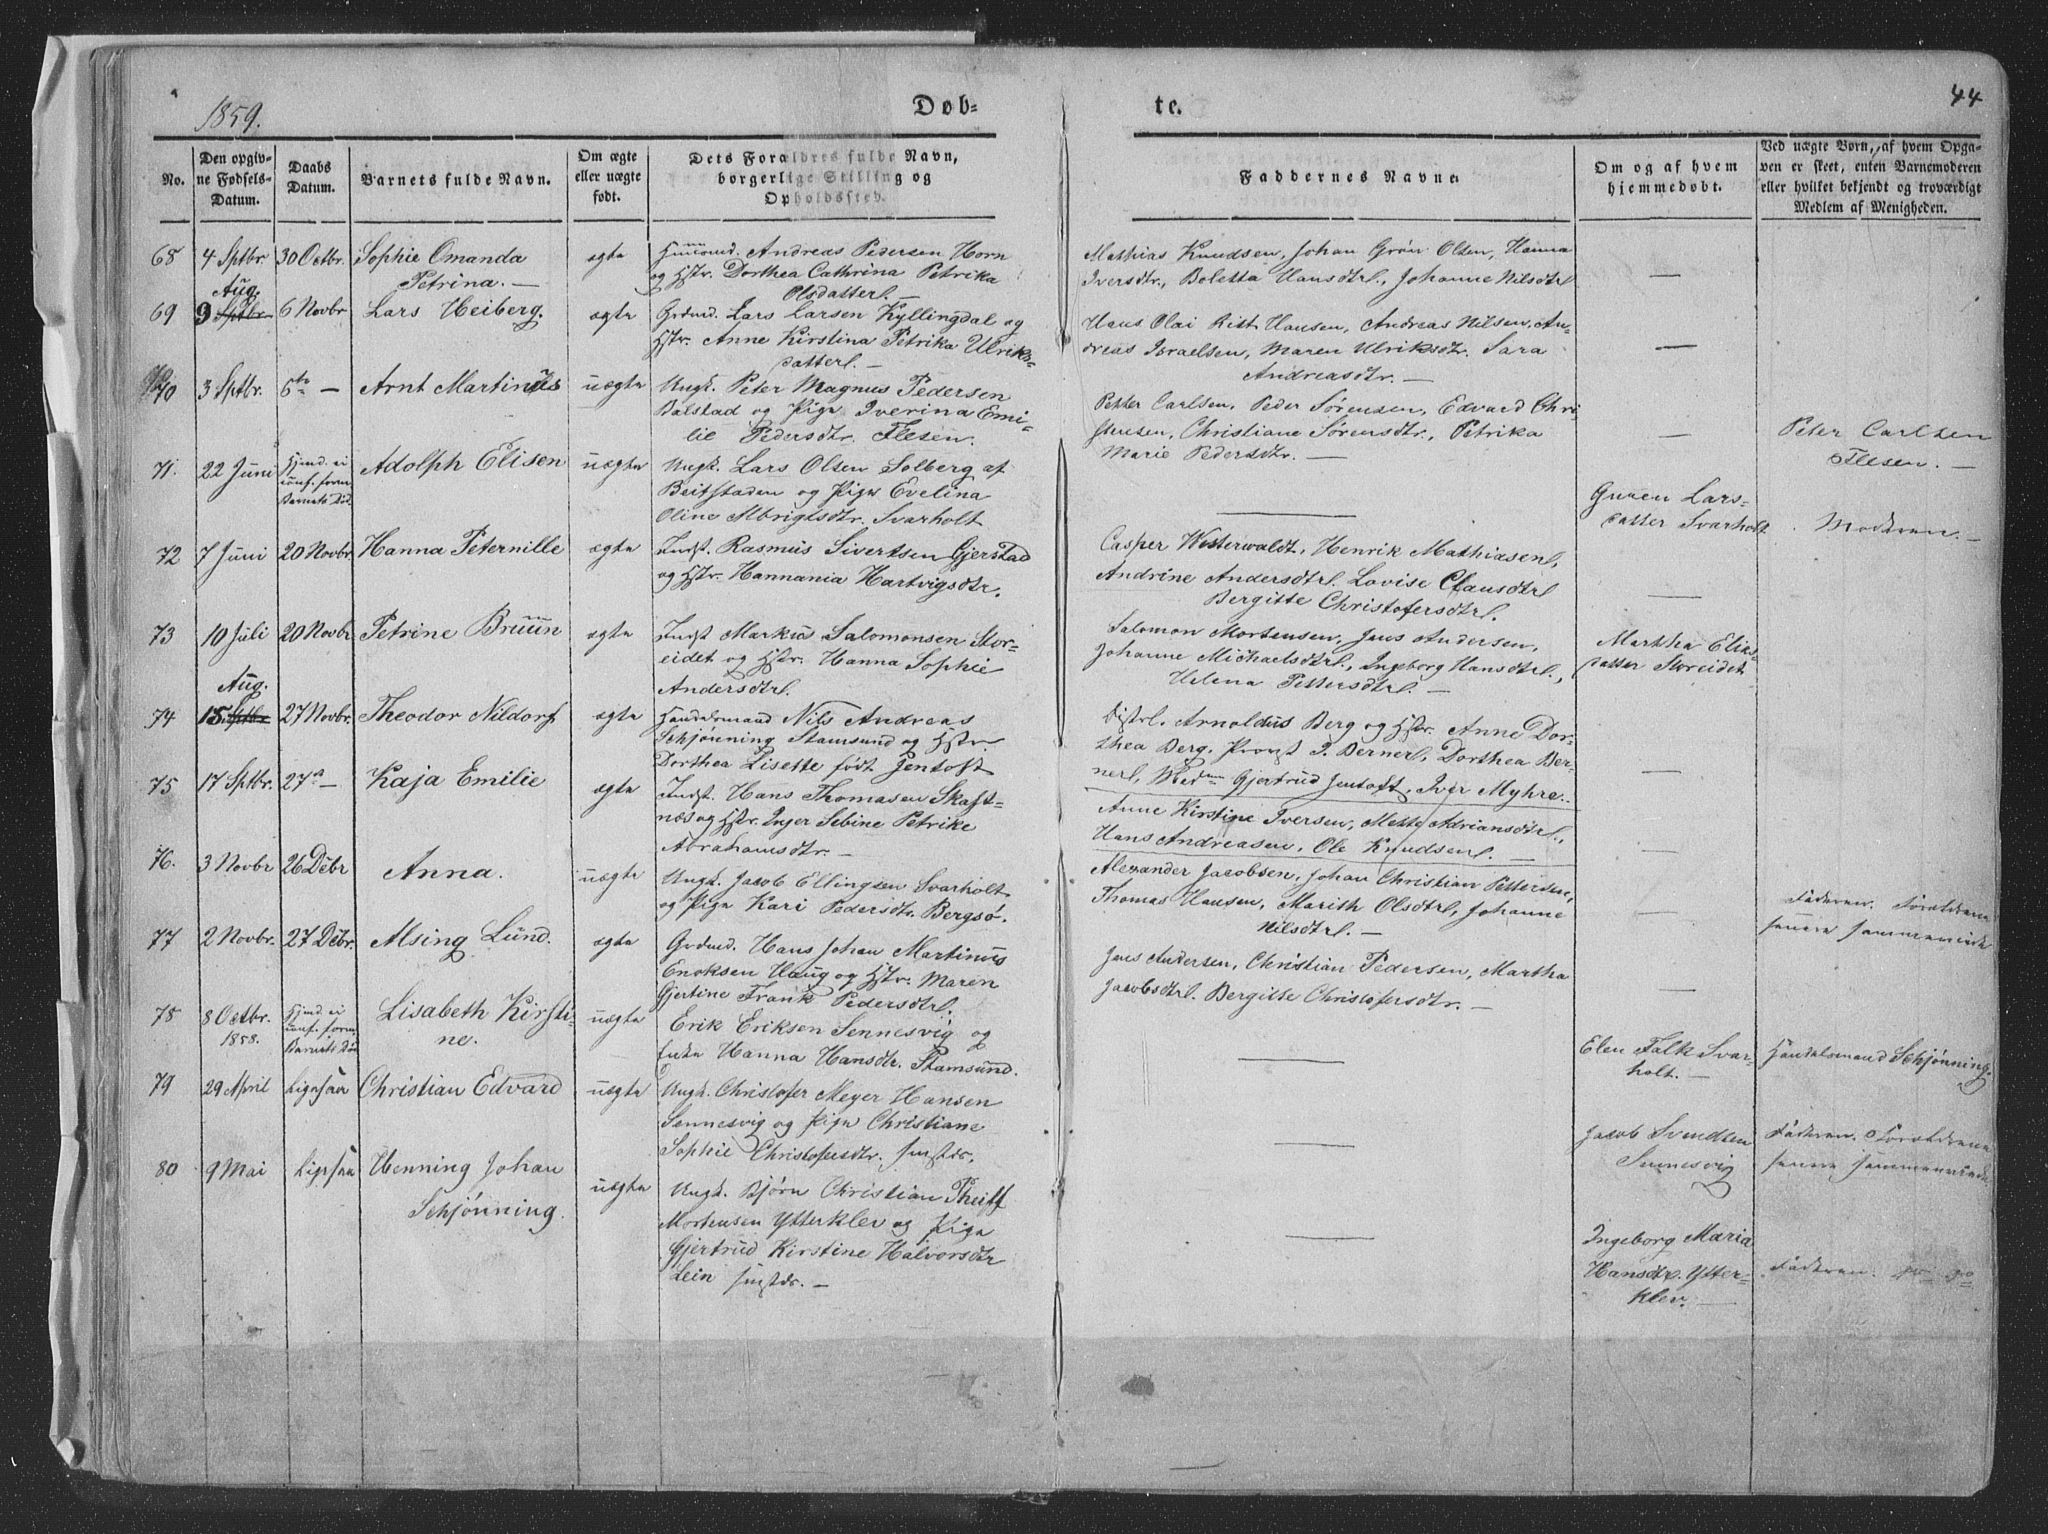 1859.
Døb-
te.
44
No.
Den opgiv-
ne Fødsels-
Datum.
Daabs
Datum.
Barnets fulde Navn.
Om ægte
eller uægte
født.
Dets Forældres fulde Navn,
borgerlige Stilling og
Opholdssted.
Faddernes Navne.
Om og af hvem
hjemmedøbt.
Ved uægte Børn, af hvem Opga-
ven er skeet, enten Barnemoderen
eller hvilket bekjendt og troværdigt
Medlem af Menigheden.
68
4 Sptbr.
30 Octbr.
Sophie Omanda
Petrina. —
ægte
Huusmd. Andreas Pedersen Horn
og Hstr. Dorthea Cathrina Petrika
Olsdatterl. —
Mathias Knudsen, Johan Grøn Olsen, Hanna
Iversdtr., Boletta Hansdtrl., Johanne Nilsdtrl
—
69
Aug.
9 Sptbr.
6 Novbr.
Lars Heiberg.
ægte
Grdmd. Lars Larsen Kyllingdal og
Hstr. Anne Kirstina Petrika Ulriks-
datterl. —
Hans Olai Rist Hansen, Andreas Nilsen, An-
dreas Israelsen, Maren Ulriksdtr. Sara
Andreasdtr. —
—
70
3 Sptbr.
6te —
Arnt Martinus
uægte
Ungk. Peter Magnus Pedersen
Balstad og Pige Iverina Emi-
lie Pedersdtr. Flesen.
Petter Carlsen, Peder Sørensen, Edvard Chri-
stensen, Christiane Sørensdtr., Petrika
Marie Pedersdtr. —
—
Peter Carlsen
Flesen. —
71.
22 Juni
Hjmd. ei
conf. form
Barnets Død
Adolph Elisen
uægte
Ungk. Lars Olsen Solberg af
Beitstaden og Pige Evelina
Oline Albrigtsdtr. Svarholt
—
Guren Lars-
datter Svarholt
Moderen. —
72
7 Juni
20 Novbr.
Hanna Peternille
ægte
Indst. Rasmus Sivertsen Gjerstad
og Hstr. Hannania Hartvigsdtr.
Casper Westerwaldt, Henrik Mathiasenl,
Andrine Andersdtrl. Lovise Clausdtrl
Bergitte Christofersdtrl.
—
73
10 Juli
20 Novbr
Petrine Bruun
ægte
Indst Markus Salomonsen Stor-
eidet og Hstr. Hanna Sophie
Andersdtrl.
Salomon Mortensen, Jens Andersen,
Johanne Michaelsdtrl., Ingeborg Hansdtrl.,
Helena Pettersdtrl. —
Martha Elias-
datter Storeidet
74
Aug.
15 Sptbr
27 Novbr.
Theodor Nildorf
ægte
Handelsmand Nils Andreas
Schjønning Stamsund og Hstr.
Dorthea Lisette født Jentoft
Distrl. Arnoldus Berg og Hstr. Anne Dor-
thea Berg, Provst P. Bernerl, Dorthea Ber-
nerl, Madm Gjertrud Jentoft, Iver Myhre.
—
75
17 Sptbr.
27de —
Kaja Emilie
ægte
Indst. Hans Thomasen Skaft-
næs og Hstr. Inger Sebine Petrike
Abrahamsdtr. —
Anne Kirstine Iversen, Mette Adriansdtrl.,
Hans Andreasen, Ole Knudsenl. —
—
76.
3 Novbr
26 Debr
Anna.
uægte
Ungk. Jacob Ellingsen Svarholt
og Pige Kari Pedersdtr. Bergsø.
Alexander Jacobsen, Johan Christian Pettersen,
Thomas Hansen, Marith Olsdtrl, Johanne
Nilsdtrl. —
—
Faderen. Forældrene
senere sammenviede
77
2 Novbr.
27 Debr.
Alsing Lund.
ægte
Grdmd. Hans Johan Martinus
Enoksen Haug og Hstr. Maren
Gjertine Frank Pedersdtrl.
Jens Andersen, Christian Pedersen, Martha
Jacobsdtrl. Bergitte Christofersdtr. —
—
78
8 Octbr.
1858.
Hjmd. ei
conf. form
Barnets Død
Lisabeth Kirsti-
ne.
uægte
Erik Eriksen Sennesvig og
Enke Hanna Hansdtr. Stamsund.
—
Elen Falk Svar-
holt. —
Handelsmand Schjønning.
79
29 April
Ligesaa
Christian Edvard
uægte
Ungk. Christofer Meyer Hansen
Sennesvig og Pige Christiane
Sophie Christofersdtr. sustds.
—
Jacob Svendsen
Sennesvig
Faderen. Forældrene
senere sammenviede
80
9 Mai
Ligesaa
Henning Johan
Schjønning.
uægte
Ungk. Bjørn Christian Theiff
Mortensen Ytterklev og Pige
Gjertrud Kirstine Halvorsdtr
Lein sustds. —
—
Ingeborg Maria
Hansdtr. Ytter-
klev. —
Faderen.